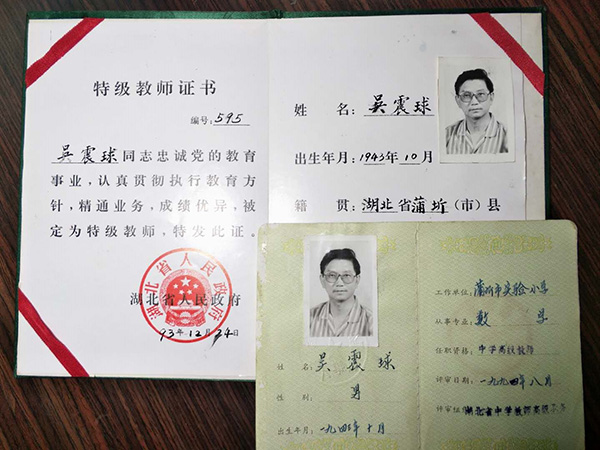 特级教师证书
编号:595
吴震球同志忠诚党的教育
事业,认真贯彻执行教育方
针,精通业务,成绩优异,被
定为特级教师,特发此证。
湖北省人民政府
93年12月24日
湖北省人民政府
姓 名:吴震球
出生年月:1943年10月
籍 贯:湖北省蒲圻(市)县
姓 名:吴震球
性 别:男
出生年月:一九四三年十月
工作单位:蒲圻市实验小学
从事专业:数 学
任职资格:中学高级教师
评审日期:一九九四年八月
评审组织:湖北省中学教师高级